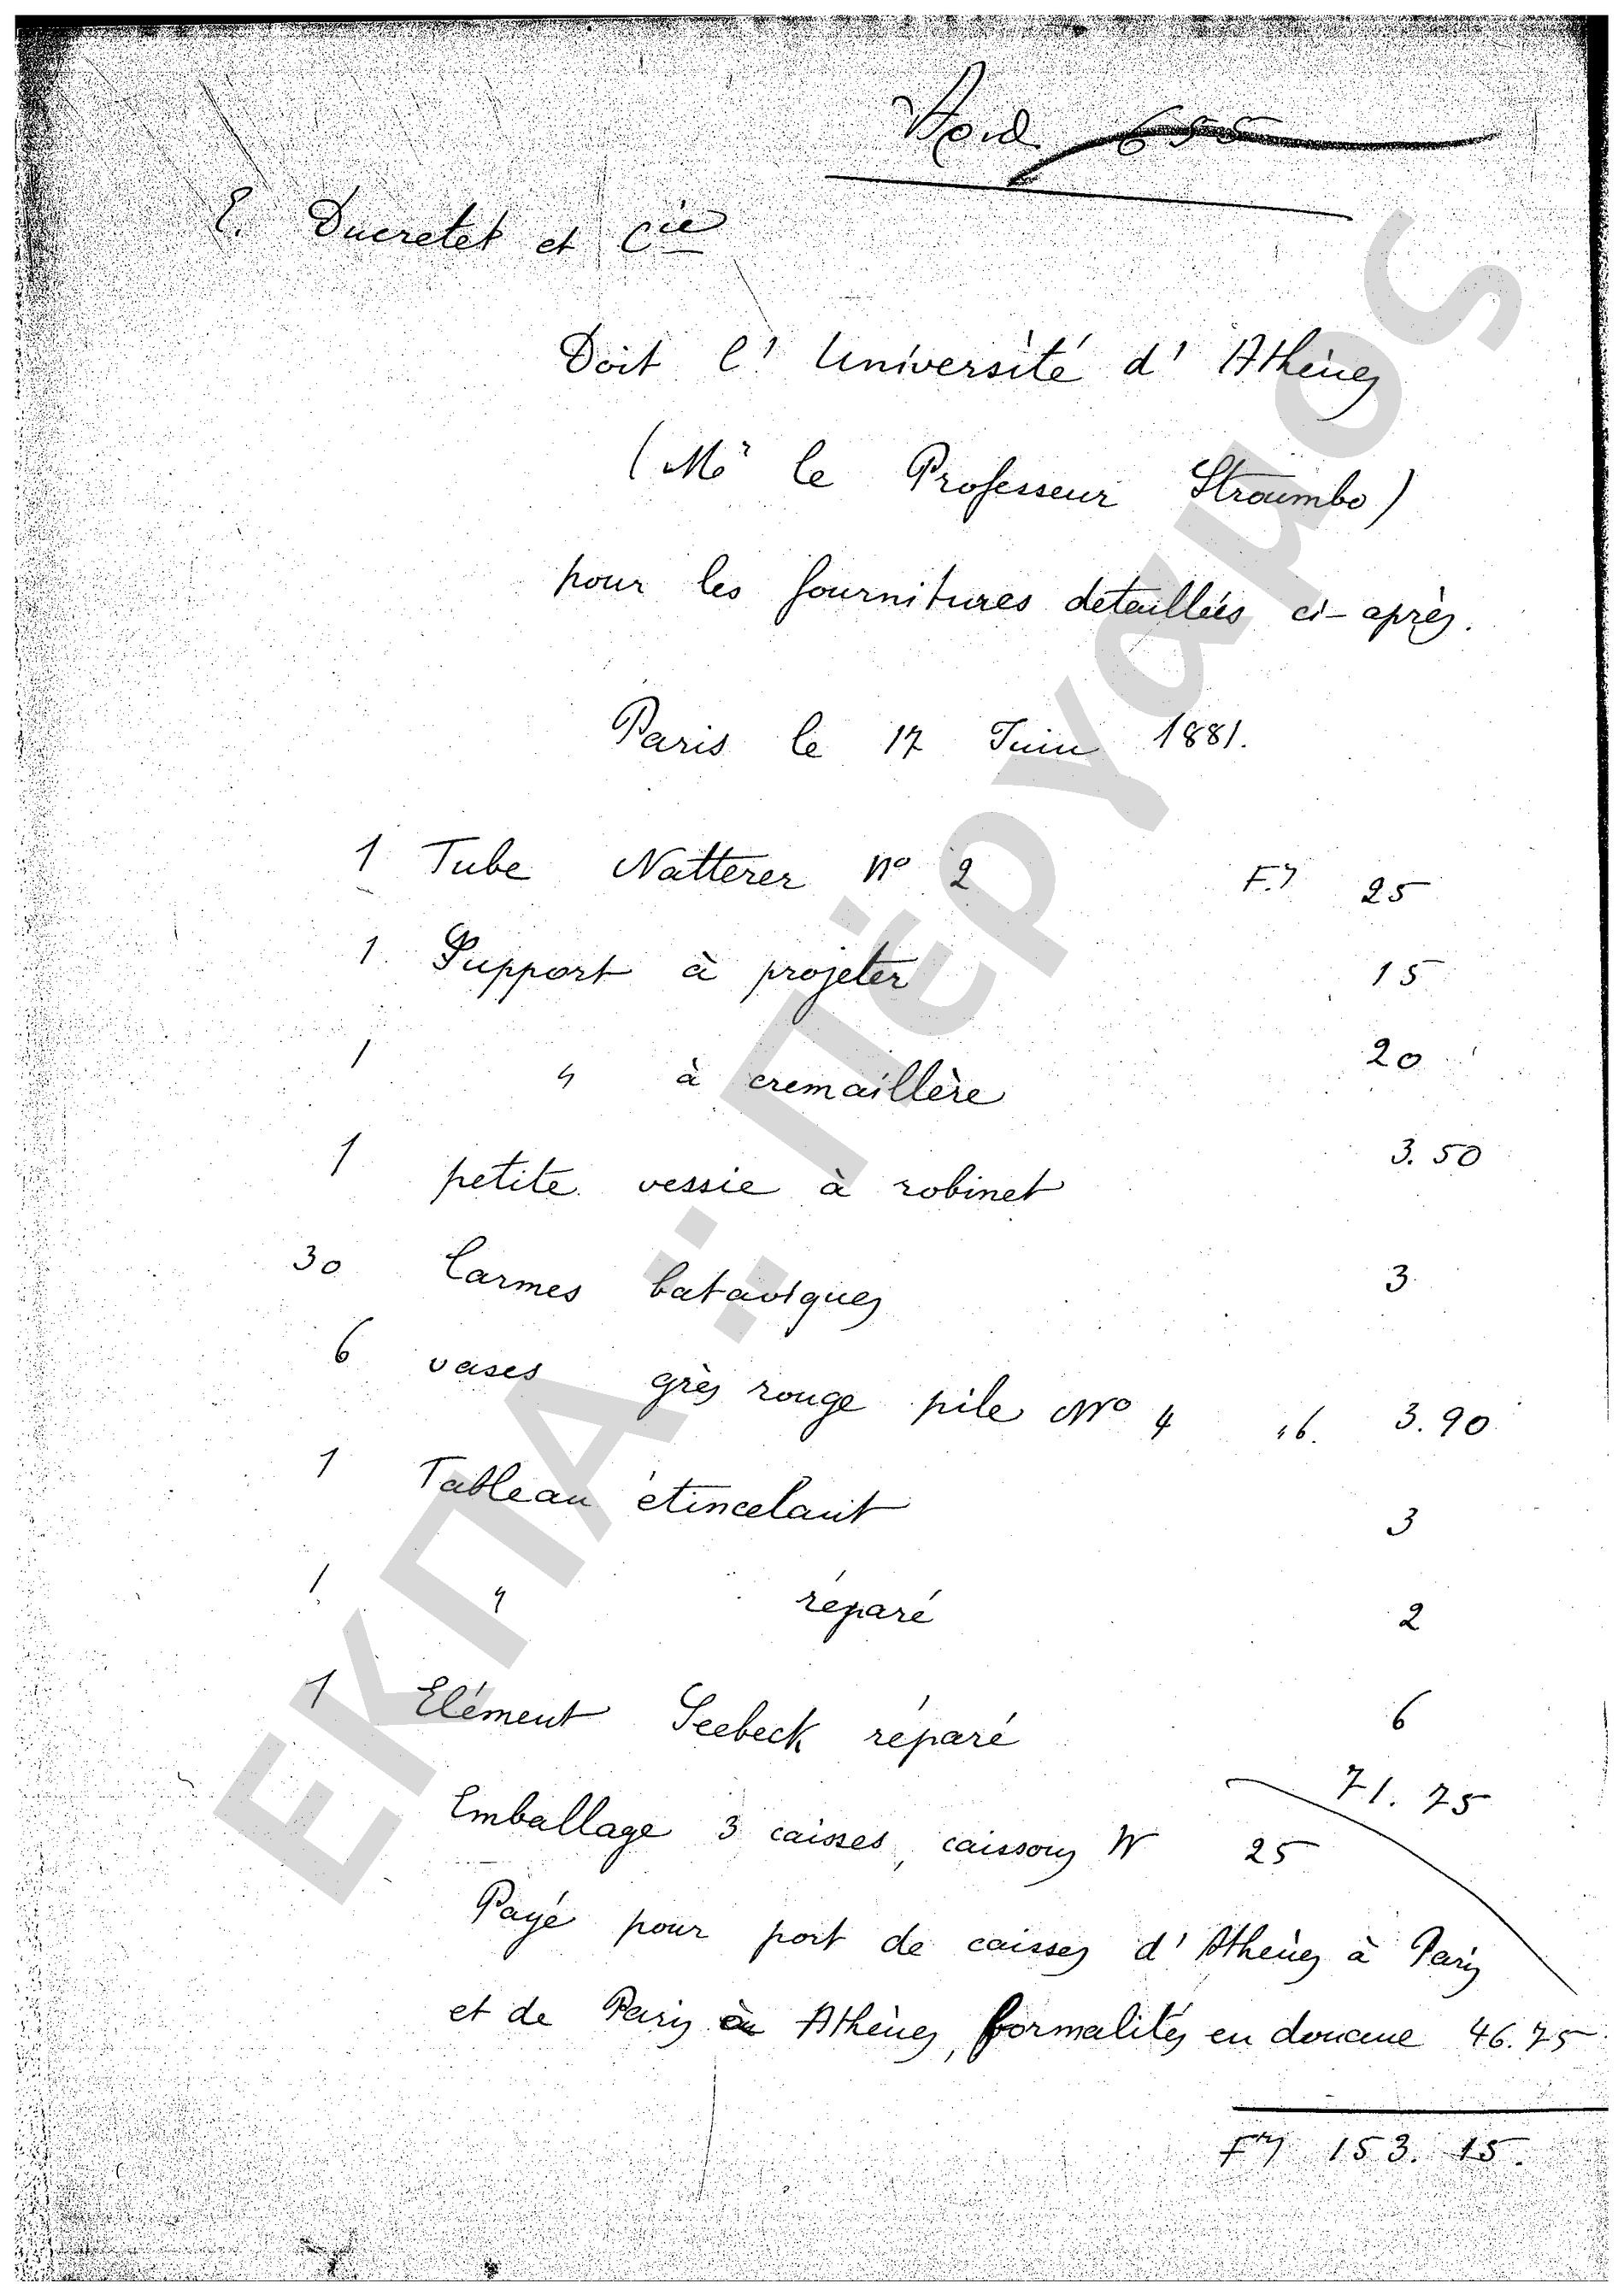 E. Ducretet et Cie
Doit l' Université d' Athènes
(Mr le Professeur Stroumbo)
pour les fournitures detaillées ci-après.
Paris le 17 Juin 1881.
1 Tube Natterer no 2 F.r 25
1 Support à projeter 15
1 " à cremaillère 20
1 petite vessie à robinet 3.50
30 larmes bataviques 3
6 vases grès rouge pile No 4 3.90
1 Tableau étincelant 3
1 " réparé 2
1 Elément Seebeck réparé 6
71.75
Emballage 3 caisses, caissons 25
Payé pour port de caisses d' Athènes à Paris
et de Paris à Athènes, formalités en douane 46.75
Fr 153.15.
ΕΚΠΑ: Πέργαμος